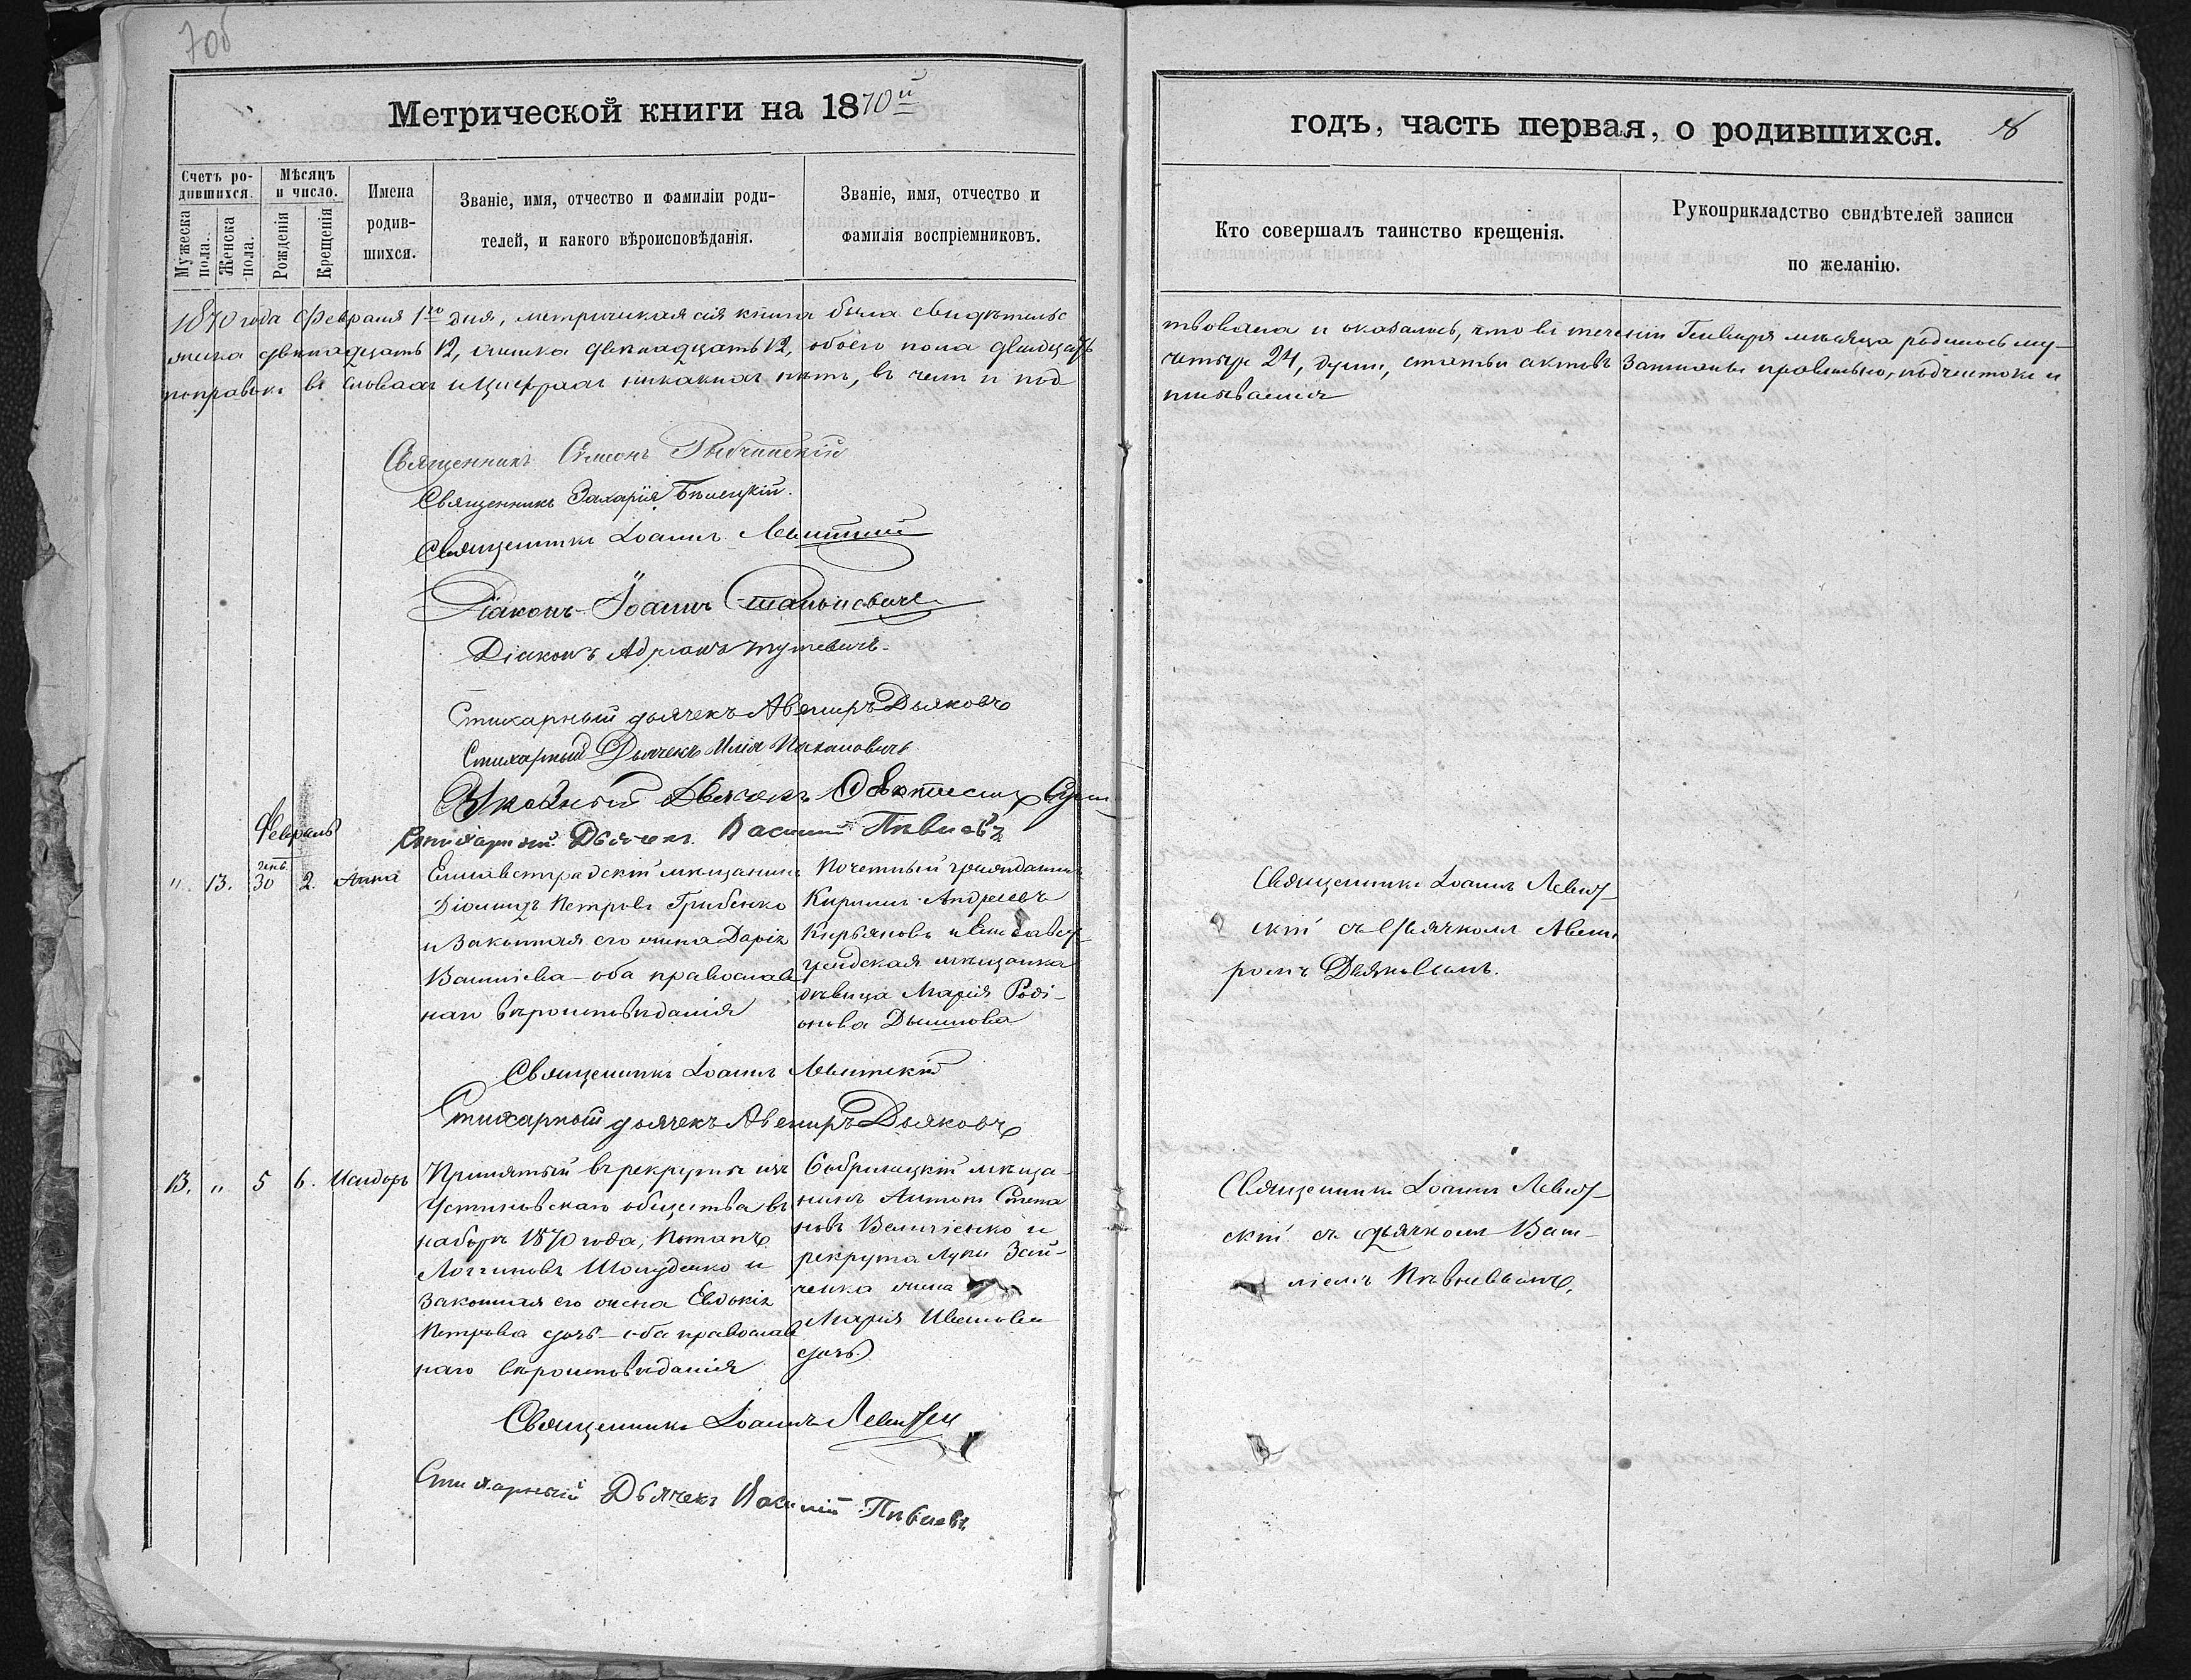 70об
Метрической книги на 1870й
годъ, часть первая, о родившихся.
Счетъ ро-
дившихся.
Мѣсяцъ
и число.
Мужеска
пола.
Женска
пола.
Рожденія
Крещенія
Имена
родив-
шихся.
Званіе, имя, отчество и фамиліи роди-
телей, и какого вѣроисповѣданія.
Званіе, имя, отчество и
фамилія воспріемниковъ.
Кто совершалъ таинство крещенія.
Рукоприкладство свидѣтелей записи
по желанію.
1870 года Февраля 1го дня, метрическая сія книга была свидѣтельс
твована и оказалось, что въ теченіи Генваря мѣсяца родилось му-
жеска двѣнадцать 12, женска двѣнадцать 12, обоего пола двадцать
четыре 24, души, статьи актовъ записаны правильно, подчистокъ и
поправокъ въ словахъ и цифрахъ никакихъ нѣтъ, въ чемъ и под
писываемся
Священникъ Симеонъ
Священникъ Захарія Бѣлецкій.
Священникъ Іоаннъ Левитскій
Діаконъ Іоаннъ
Діаконъ Адріанъ
Стихарный дьячекъ Авениръ Дьяковъ
Стихарный Дьячекъ Илія
Указный Дьячекъ
Стихарный Дьячекъ Василій Пѣвневъ
Февраль
генв.
" 13. 30 2. Анна
Елисаветградскій мѣщанинъ
Діомидъ Петровъ Грибенко
и законная его жена Дарія
Василіева – оба православ
наго вѣроисповѣданія
Почетный гражданинъ
Кириллъ Андреевъ
Кирьяновъ и Елисавет-
градская мѣщанка
дѣвица Марія Роді-
онова
Священникъ Іоаннъ Левит-
скій съ дьячкомъ Авени
ромъ Дьяковымъ.
Священникъ Іоаннъ Левитскій
Стихарный дьячекъ Авениръ Дьяковъ
13. " 5 6. Исидоръ
Принятый въ рекруты изъ
Устиновскаго общества въ
наборъ 1870 года, Потапъ
Логгиновъ Шолуденко и
законная его жена Евдокія
Петрова дочь – оба православ
наго вѣроисповѣданія
Бобринецкій мѣща-
нинъ Антонъ Степа
новъ Величенко и
рекрута Луки Зай-
ченка жена
Марія Иванова
дочь.
Священникъ Іоаннъ Левит-
скій съ дьячкомъ Васи-
ліемъ Пѣвневымъ.
Священникъ Іоаннъ Левитскій
Стихарный Дьячекъ Василій Пѣвневъ